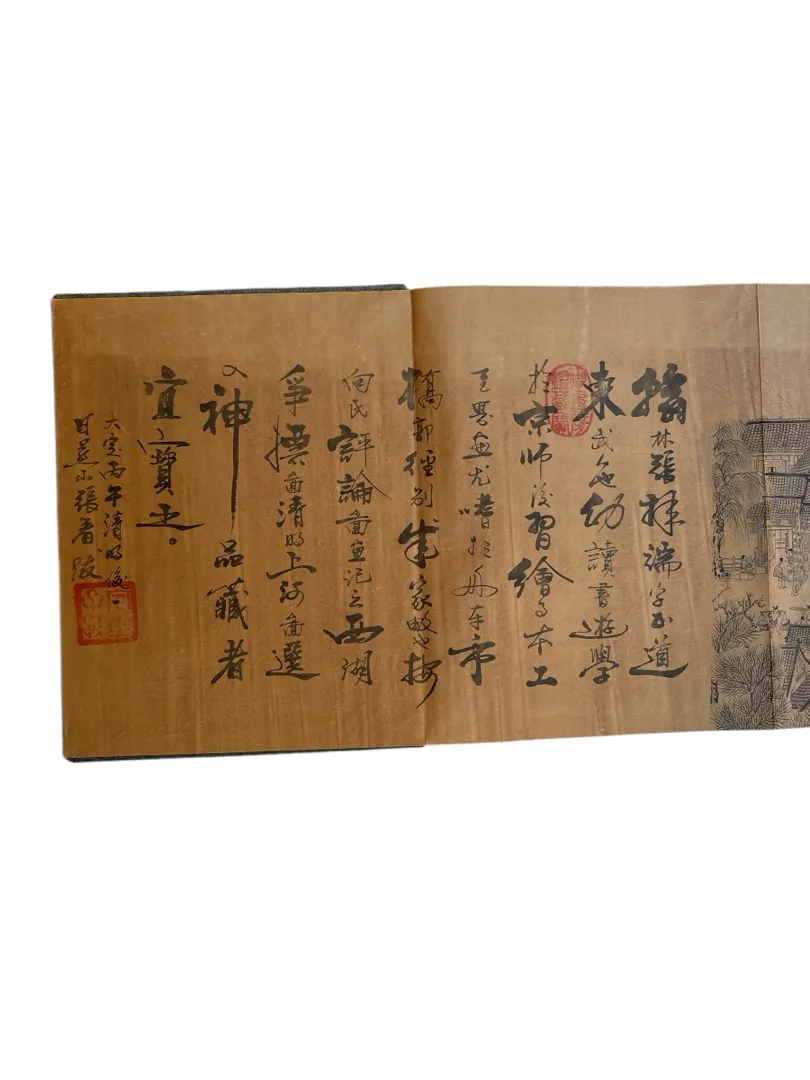 翰林張擇端字正道
東武人也幼讀書遊學
於京師後習繪事本工
其界畫尤嗜於舟車市
橋郭徑別成家數也按
向氏評論圖畫記云西湖
爭標圖清明上河圖選
入神品藏者
宜寶之。
大定丙午清明後一
日燕山張著跋